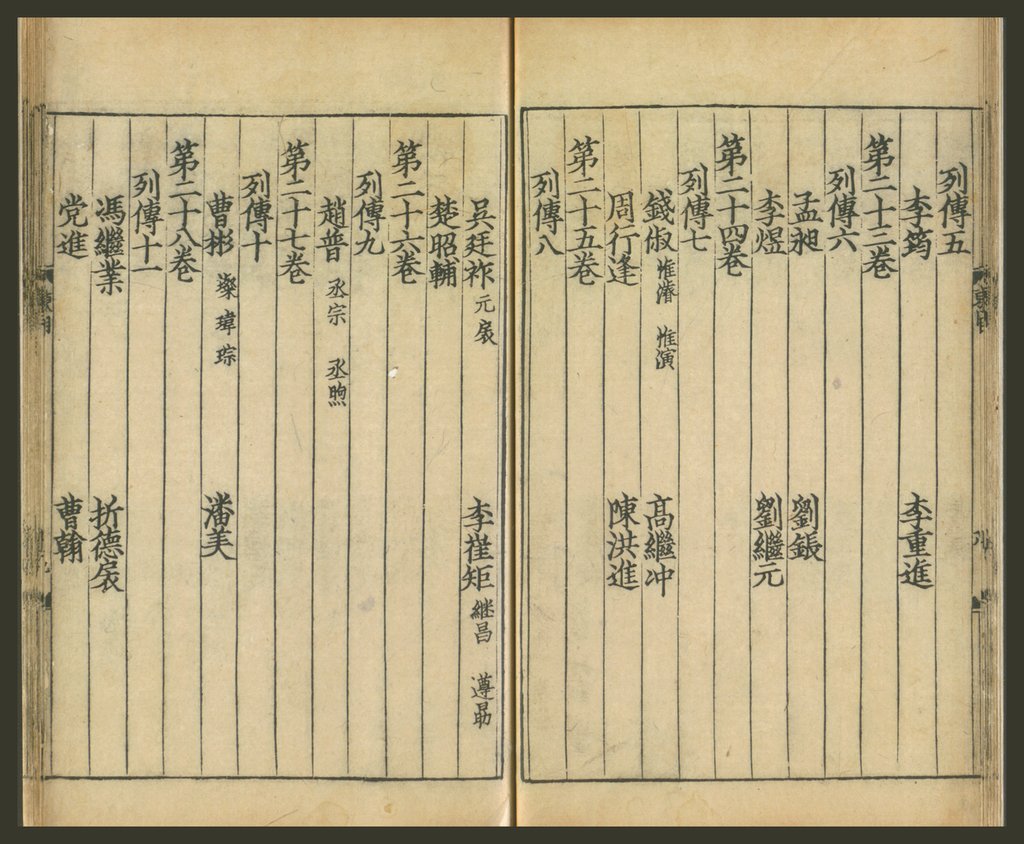 列傳五
李筠 李重進
第二十三卷
列傳六
孟昶 劉鋹
李煜 劉繼元
第二十四卷
列傳七
錢俶 惟濬 惟演 高繼冲
周行逢 陳洪進
第二十五卷
列傳八
吳廷祚 元扆 李崔矩 継昌 遵勗
楚昭輔
第二十六卷
列傳九
趙普 丞宗 丞煦
第二十七卷
列傳十
曹彬 璨 瑋 琮 潘美
第二十八卷
列傳十一
馮繼業 折德扆
党進 曹翰